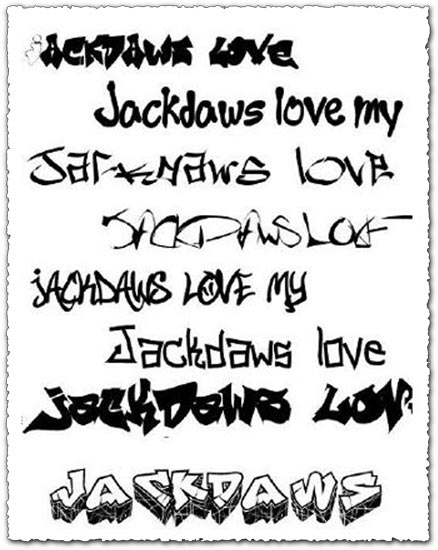 jACKDAWS LOVE
Jackdaws love my
Jackdaws love
JACKDAWS LOVE
jACKDAWS LOVE My
Jackdaws love
jackDaws LOV
JACKDAWS